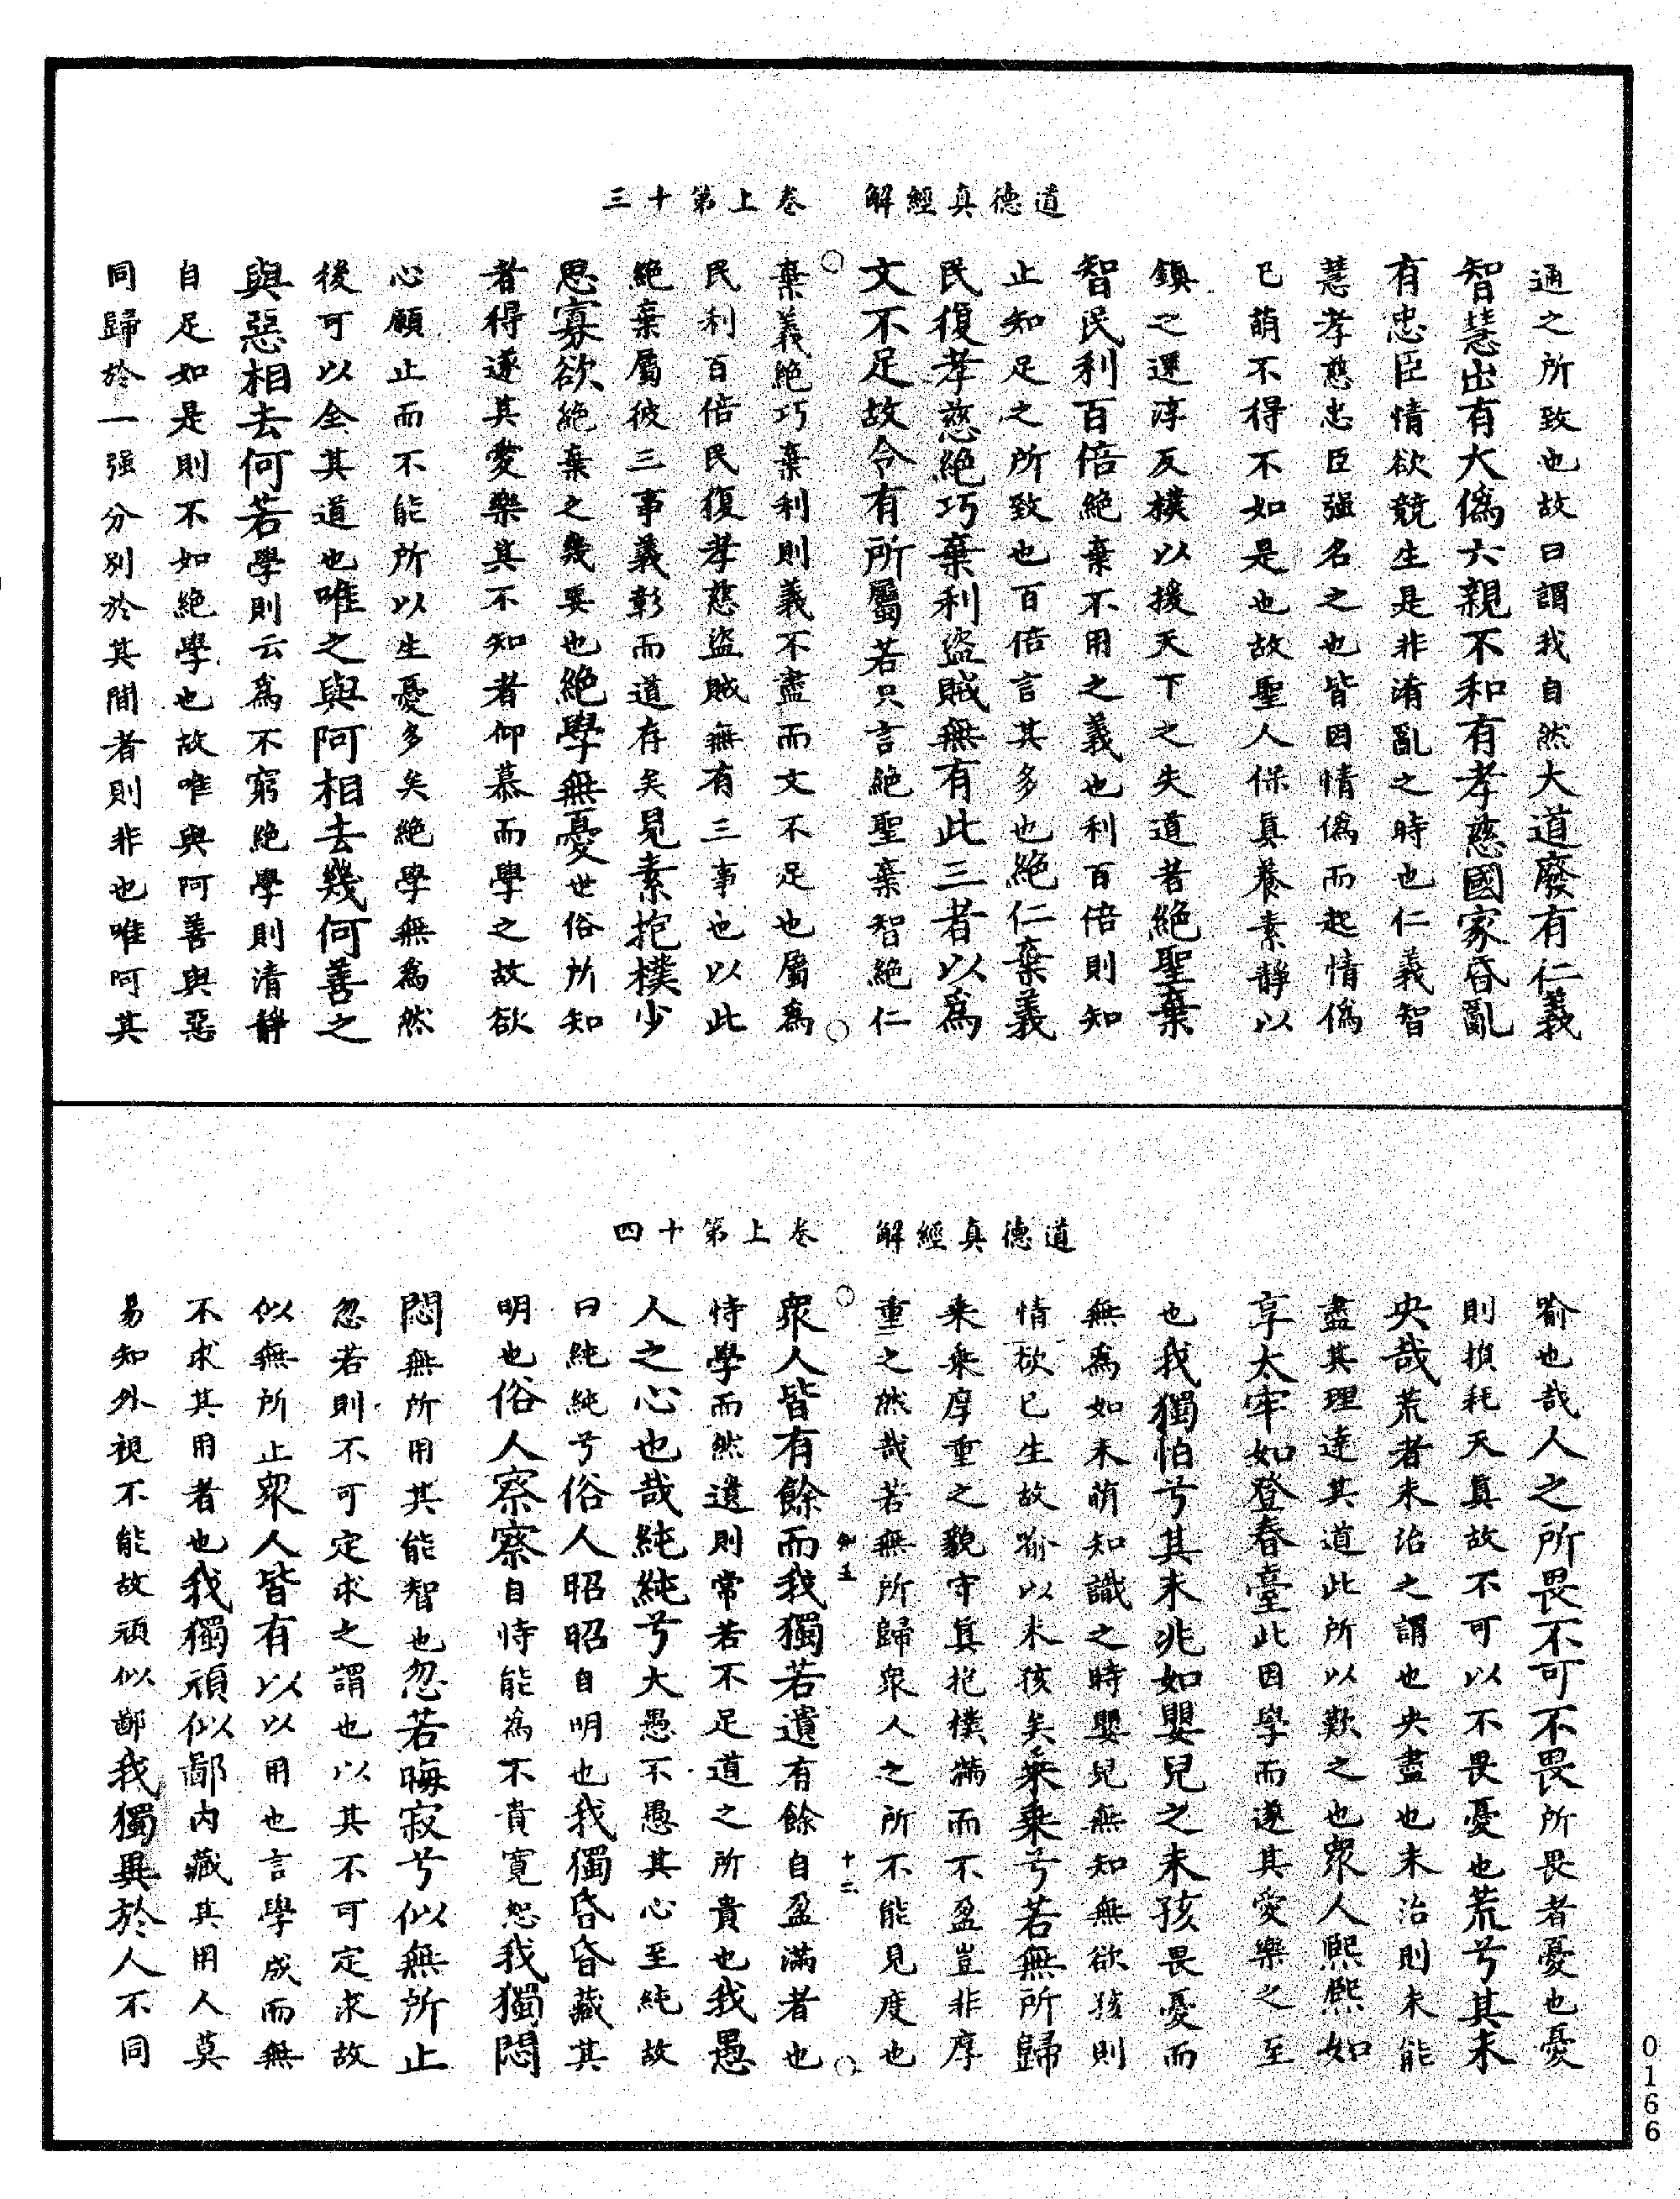 道德真經解　卷上第十三
通之所致也故曰謂我自然大道廢有仁義
智慧出有大偽六親不和有孝慈國家昏亂
有忠臣情欲競生是非淆亂之時也仁義智
慧孝慈忠臣強名之也皆因情偽而起情偽
已萌不得不如是也故聖人保真養素靜以
鎮之還淳反樸以援天下之失道者絕聖棄
智民利百倍絕棄不用之義也利百倍則知
止知足之所致也百倍言其多也絕仁棄義
民復孝慈絕巧棄利盜賊無有此三者以為
文不足故令有所屬若只言絕聖棄智絕仁
棄義絕巧棄利則義不盡而文不足也屬為
民利百倍民復孝慈盜賊無有三事也以此
絕棄屬彼三事義彰而道存矣見素抱樸少
思寡欲絕棄之幾要也絕學無憂世俗所知
者得遂其愛樂其不知者仰慕而學之故欲
心顧止而不能所以生憂多矣絕學無為然
後可以全其道也唯之與阿相去幾何善之
與惡相去何若學則云為不窮絕學則清靜
自足如是則不如絕學也故唯與阿善與惡
同歸於一強分別於其間者則非也唯阿其
道德真經解　卷上第十四
喻也哉人之所畏不可不畏所畏者憂也憂
則損耗天真故不可以不畏憂也荒兮其未
央哉荒者未治之謂也央盡也未治則未能
盡其理達其道此所以歎之也眾人熙熙如
享太牢如登春臺此因學而遂其愛樂之至
也我獨怕兮其未兆如嬰兒之未孩畏憂而
無為如未萌知識之時嬰兒無知無欲孩則
情欲已生故喻以未孩矣乘乘兮若無所歸
乘乘厚重之貌守真抱樸滿而不盈豈非厚
重之然哉若無所歸眾人之所不能見度也
眾人皆有餘而我獨若遺有餘自盈滿者也
恃學而然遺則常若不足道之所貴也我愚
人之心也哉純純兮大愚不愚其心至純故
曰純純兮俗人昭昭自明也我獨昏昏藏其
明也俗人察察自恃能為不貴寬恕我獨悶
悶無所用其能智也忽若晦寂兮似無所止
忽若則不可定求之謂也以其不可定求故
似無所止眾人皆有以以用也言學成而無
不求其用者也我獨頑似鄙內藏其用人莫
易知外視不能故頑似鄙我獨異於人不同
十二
0166